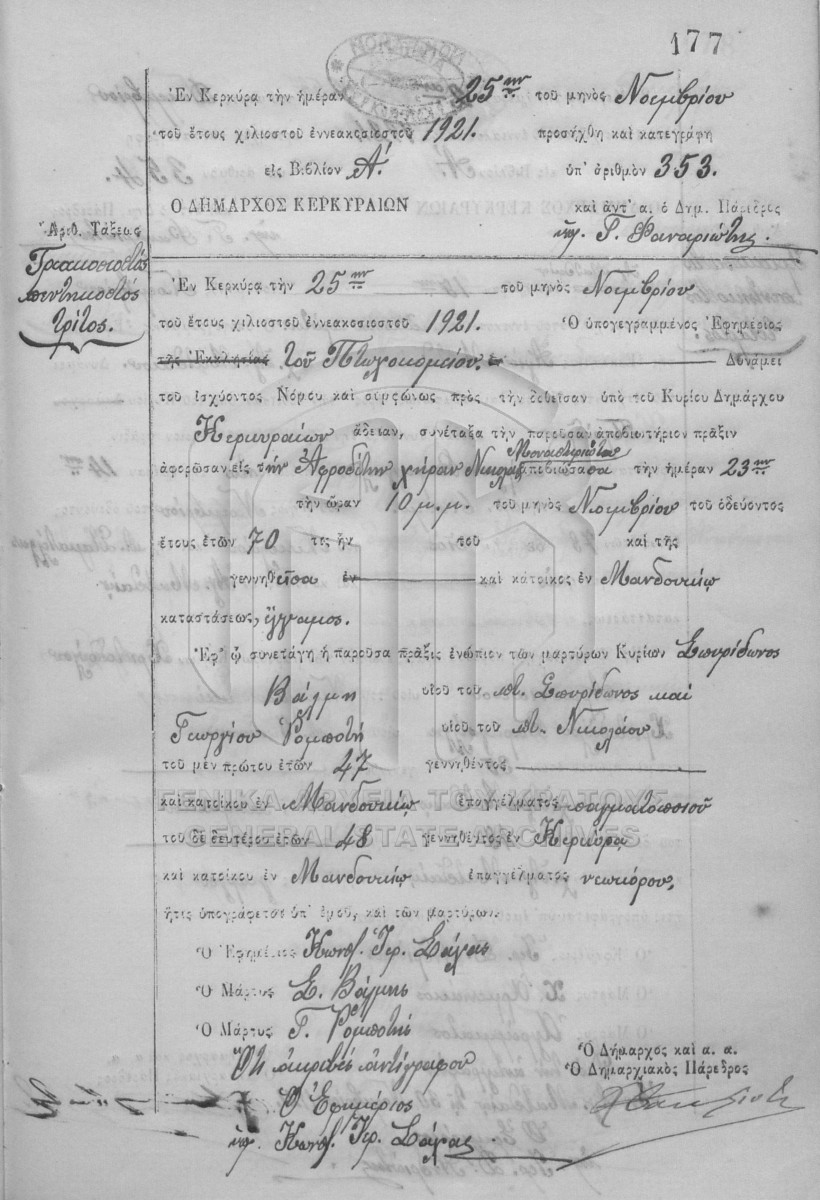 177
Ἐν Κερκύρᾳ τὴν ἡμέραν 25ην τοῦ μηνὸς Νοεμβρίου
τοῦ ἔτους χιλιοστοῦ ἐννεακοσιοστοῦ 1921. προσήχθη καὶ κατεγράφη
εἰς Βιβλίον Α΄ ὑπ' ἀριθμὸν 353.
Ο ΔΗΜΑΡΧΟΣ ΚΕΡΚΥΡΑΙΩΝ καὶ ἀντ' α. ὁ Δημ. Πάρεδρος
ὑπ. Γ. Φαναριώτης
Ἀριθ. Τάξεως
Τριακοσιοστός
πεντηκοστός
τρίτος.
Ἐν Κερκύρᾳ τὴν 25ην τοῦ μηνὸς Νοεμβρίου
τοῦ ἔτους χιλιοστοῦ ἐννεακοσιοστοῦ 1921. Ὁ ὑπογεγραμμένος Ἐφημέριος
τῆς Ἐκκλησίας τοῦ Πτωχοκομείου. Δυνάμει
τοῦ ἰσχύοντος Νόμου καὶ συμφώνως πρὸς τὴν δοθεῖσαν ὑπὸ τοῦ Κυρίου Δημάρχου
Κερκυραίων ἄδειαν, συνέταξα τὴν παροῦσαν ἀποβιωτήριον πρᾶξιν
Μοναστηριώτα
ἀφορῶσαν εἰς τήν Ἀφροδίτην χήραν Νικολάου ἀπεβιώσασα τὴν ἡμέραν 23ην
τὴν ὥραν 10 μ.μ. τοῦ μηνὸς Νοεμβρίου τοῦ ὁδεύοντος
ἔτους ἐτῶν 70 τις ἦν τοῦ καὶ τῆς
γεννηθεῖσα ἐν καὶ κάτοικος ἐν Μανδουκίῳ
καταστάσεως, ἔγγαμος.
Ἐφ' ᾧ συνετάγη ἡ παροῦσα πρᾶξις ἐνώπιον τῶν μαρτύρων Κυρίων Σπυρίδωνος
Βάλμη υἱοῦ τοῦ ποτ. Σπυρίδωνος καί
Γεωργίου Ρομποτῆ υἱοῦ τοῦ ποτ. Νικολάου
τοῦ μὲν πρώτου ἐτῶν 47 γεννηθέντος
καὶ κατοίκου ἐν Μανδουκίῳ ἐπαγγέλματος παγματοποιοῦ
τοῦ δὲ δευτέρου ἐτῶν 48 γεννηθέντος ἐν Κερκύρᾳ
καὶ κατοίκου ἐν Μανδουκίῳ ἐπαγγέλματος νεωκόρου,
ἥτις ὑπογράφεται ὑπ' ἐμοῦ, καὶ τῶν μαρτύρων.
Ὁ Ἐφημέριος Κωνστ. Ἱερ. Σάλας
Ὁ Μάρτυς Σ. Βάλμης
Ὁ Μάρτυς Γ. Ρομποτής
Ὅτι ἀκριβές ἀντίγραφον
Ὁ Ἐφημέριος
ὑπ. Κωνστ. Ἱερ. Σάλας
Ὁ Δήμαρχος καὶ α. α.
Ὁ Δημαρχιακὸς Πάρεδρος
ΓΕΝΙΚΑ ΑΡΧΕΙΑ ΤΟΥ ΚΡΑΤΟΥΣ
GENERAL STATE ARCHIVES